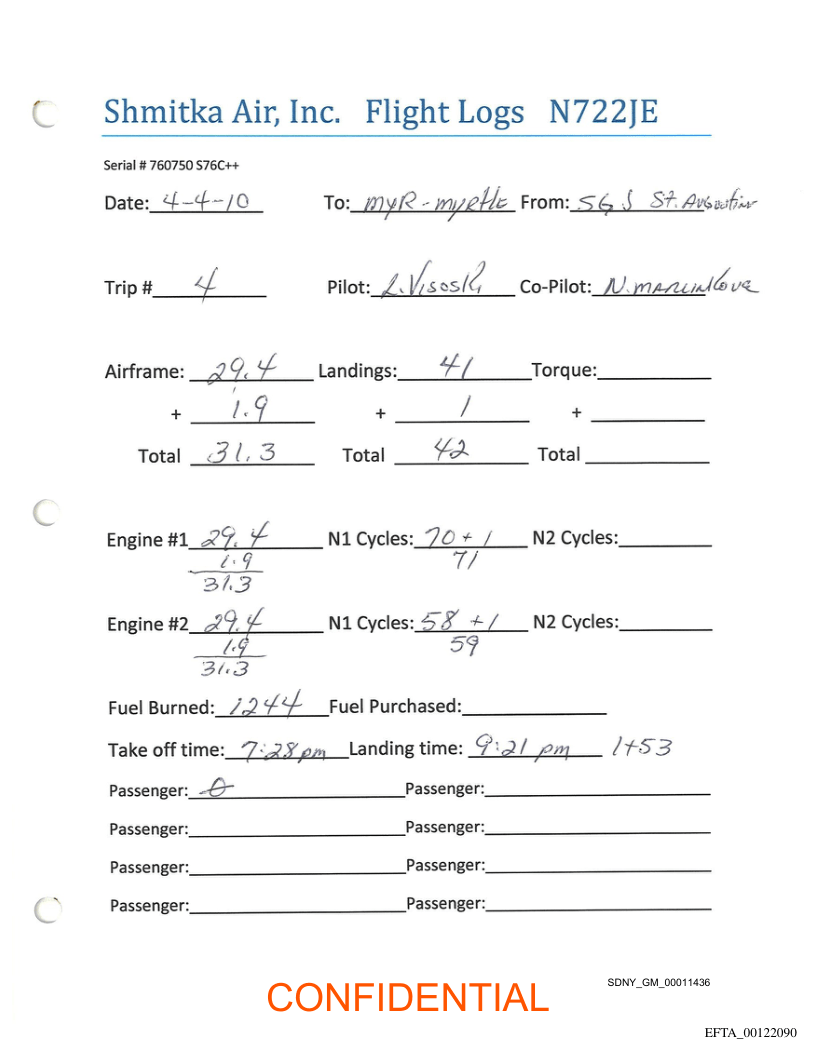 Shmitka Air, Inc. Flight Logs N722JE
Serial # 760750 S76C++
Date: 4-4-10 To: MYR - myrtle From: SGJ St. Augustine
Trip # 4 Pilot: L. Visoski Co-Pilot: N. marcinkova
Airframe: 29.4 Landings: 41 Torque:
+ 1.9 + 1 +
Total 31.3 Total 42 Total
Engine #1 29.4 N1 Cycles: 70 + 1 N2 Cycles:
1.9 71
31.3
Engine #2 29.4 N1 Cycles: 58 +1 N2 Cycles:
1.9 59
31.3
Fuel Burned: 1244 Fuel Purchased:
Take off time: 7:28 pm Landing time: 9:21 pm 1+53
Passenger: 0 Passenger:
Passenger: Passenger:
Passenger: Passenger:
Passenger: Passenger:
SDNY_GM_00011436
CONFIDENTIAL
EFTA_00122090